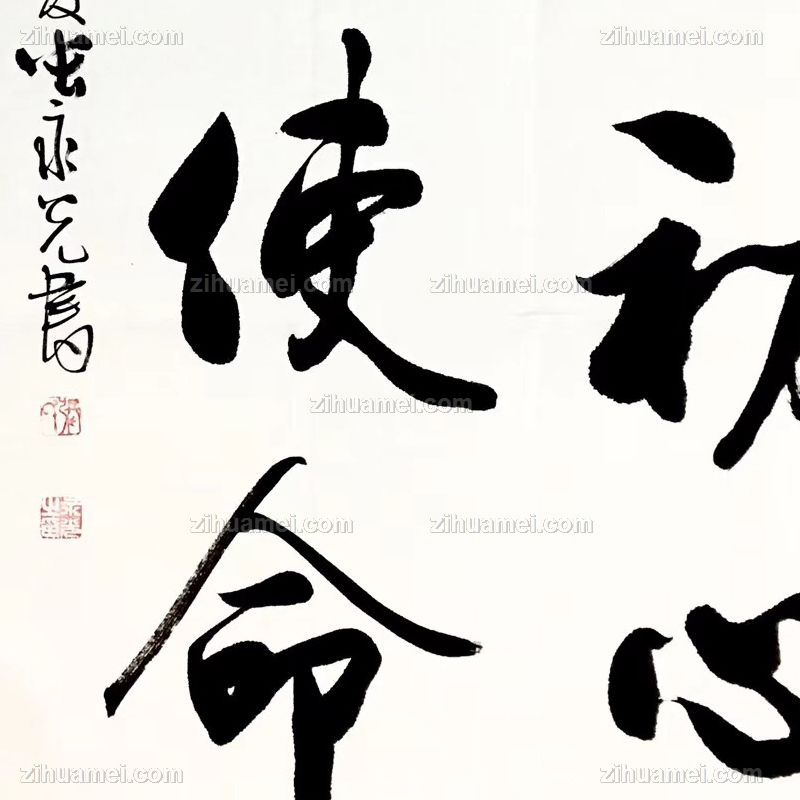 初心
使命
永光書
zihuamei.com zihuamei.com zihuamei.com
zihuamei.com zihuamei.com
zihuamei.com
zihuamei.com zihuamei.com
zihuamei.com zihuamei.com